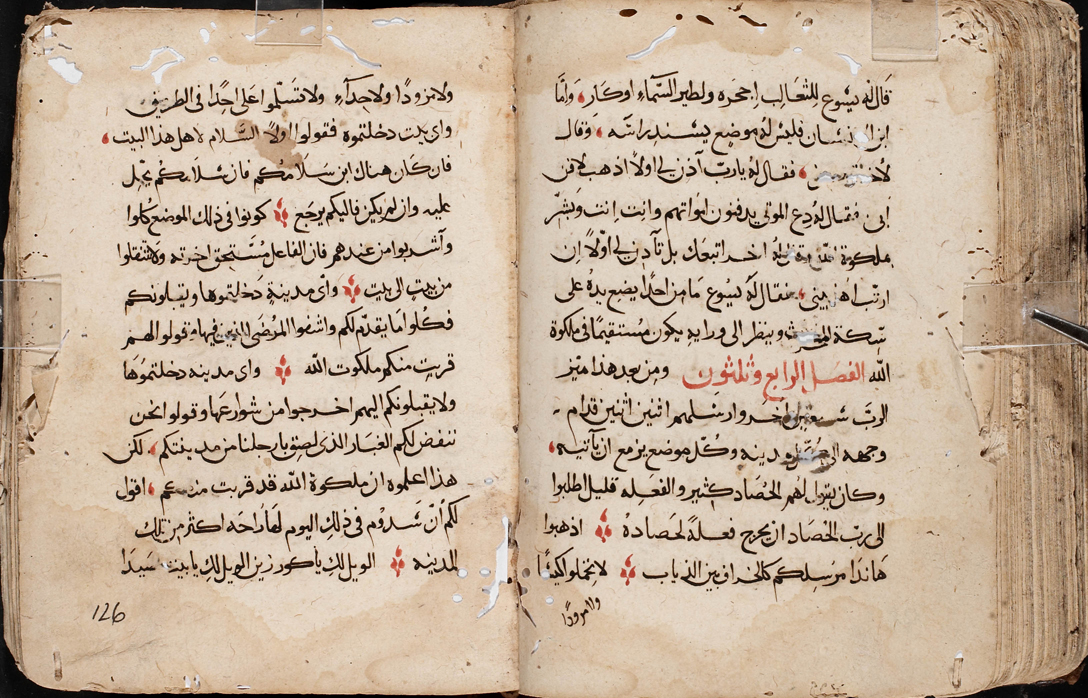 قال له يسوع للثعالب اجحره ولطير السماء اوكار وامّا
ابن الانسان فليس له موضع يسند راسه وقال
لاخر فقال له يارب آذن لي اولاً اذهب لادفن
ابى فقال له دع الموتى يدفنون امواتهم وانت انت وبشر
بملكوة الله وقال له اخر اتبعك بل تأذن لي اوّلاً ان
ارتب اهل بيتى فقال له يسوع ما من احدًا يضع يده على
سكة المحرث وينظر الى ورايه يكون مستقيمًا في ملكوة
الله الفصل الرابع وثلثون ومن بعد هذا ميّز
الربّ سبعين اخر وارسلهم اثنين اثنين قدام
وجهه الى كل مدينه وكلّ موضع يزمع ان يآتيه
وكان يقول لهم الحصاد كثير والفعله قليل اطلبوا
الى ربّ الحصاد ان يخرج فعلةً لحصاده اذهبوا
هاندا مرسلكم كالخراف بين الذياب لا تحملوا كيسًا
ولا مزودًا
ولا مزودًا ولا حدآء ولا تسلّموا على احدًا في الطريق
واى بيت دخلتموه فقولوا اولاً السّلام لاهل هذا البيت
فان كان هناك ابن سلامكم فان سلامكم يحل
عليه وان لم يكن فاليكم يرجع كونوا في ذلك الموضع كلوا
وآشربوا من عندهم فان الفاعل مستحق اجرته ولا تنتقلوا
من بيت الى بيت واى مدينة دخلتموها ويقبلونكم
فكلوا مما يقدّم لكم واشفوا المرضى الذين فيها وقولوا لهم
قربت منكم ملكوت الله واى مدينه دخلتموها
ولا يقبلونكم اليهم اخرجوا من شوارعها وقولوا نحن
ننفض لكم الغبار الذى لصق بارجلنا من مدينتكم لكن
هذا اعلموه ان ملكوة الله قد قربت منكم اقول
لكم أنّ سدوم في ذلك اليوم لها راحه اكثر من تلك
المدينه الويل لكِ يا كورزين الويل لكِ يا بيت صيدا
126